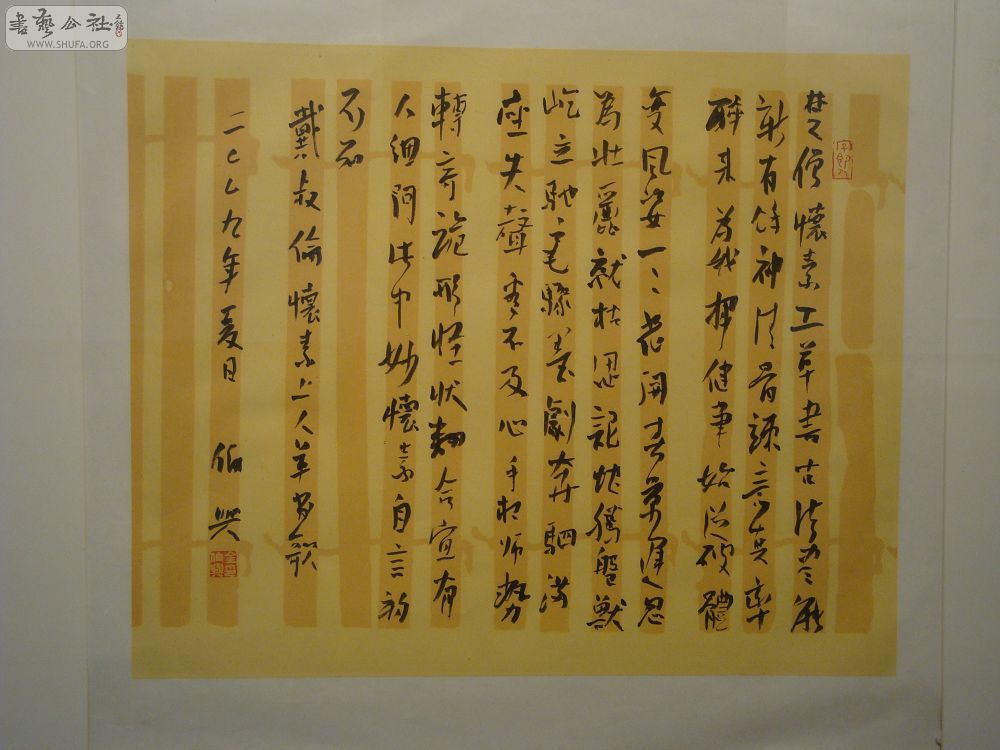 書藝公社
WWW.SHUFA.ORG
楚僧懷素工草書古法盡能
新有餘神清骨竦意真率
醉来為我揮健筆始從破體
變風姿一一花開春景遲忽
為壯麗就枯澀龍蛇騰盤獸
屹立馳毫驟墨劇奔駟滿
座失聲看不及心手相師勢
轉奇詭形怪狀翻合宜有
人細問此中妙懷素自言初
不知
戴叔倫懷素上人草書歌
二〇〇九年夏日 伯興